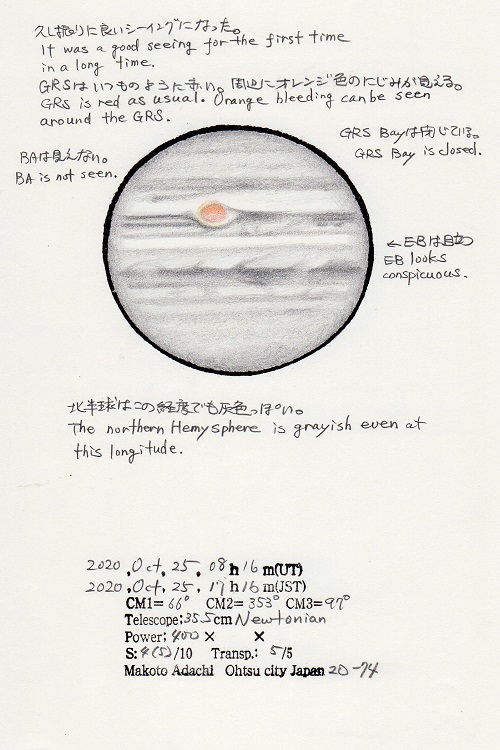 久し振りに良いシーイングになった。
It was a good seeing for the first time
in a long time.
GRSはいつものように赤い。周辺にオレンジ色のにじみが見える。
GRS is red as usual. Orange bleeding can be seen
around the GRS.
GRS Bayは閉じている。
GRS Bay is closed.
BAは見えない。
BA is not seen.
←EBは目立つ
EB looks
conspicuous.
北半球はこの経度でも灰色っぽい。
The northern Hemysphere is grayish even at
this longitude.
2020, Oct, 25, 08 h 16 m(UT)
2020, Oct, 25, 17 h 16 m(JST)
CM1= 66° CM2= 353° CM3= 97°
Telescope: 35.5 cm Newtonian
Power: 400 × ×
S: 4(5)/10 Transp.: 5/5
Makoto Adachi Ohtsu city Japan 20-74